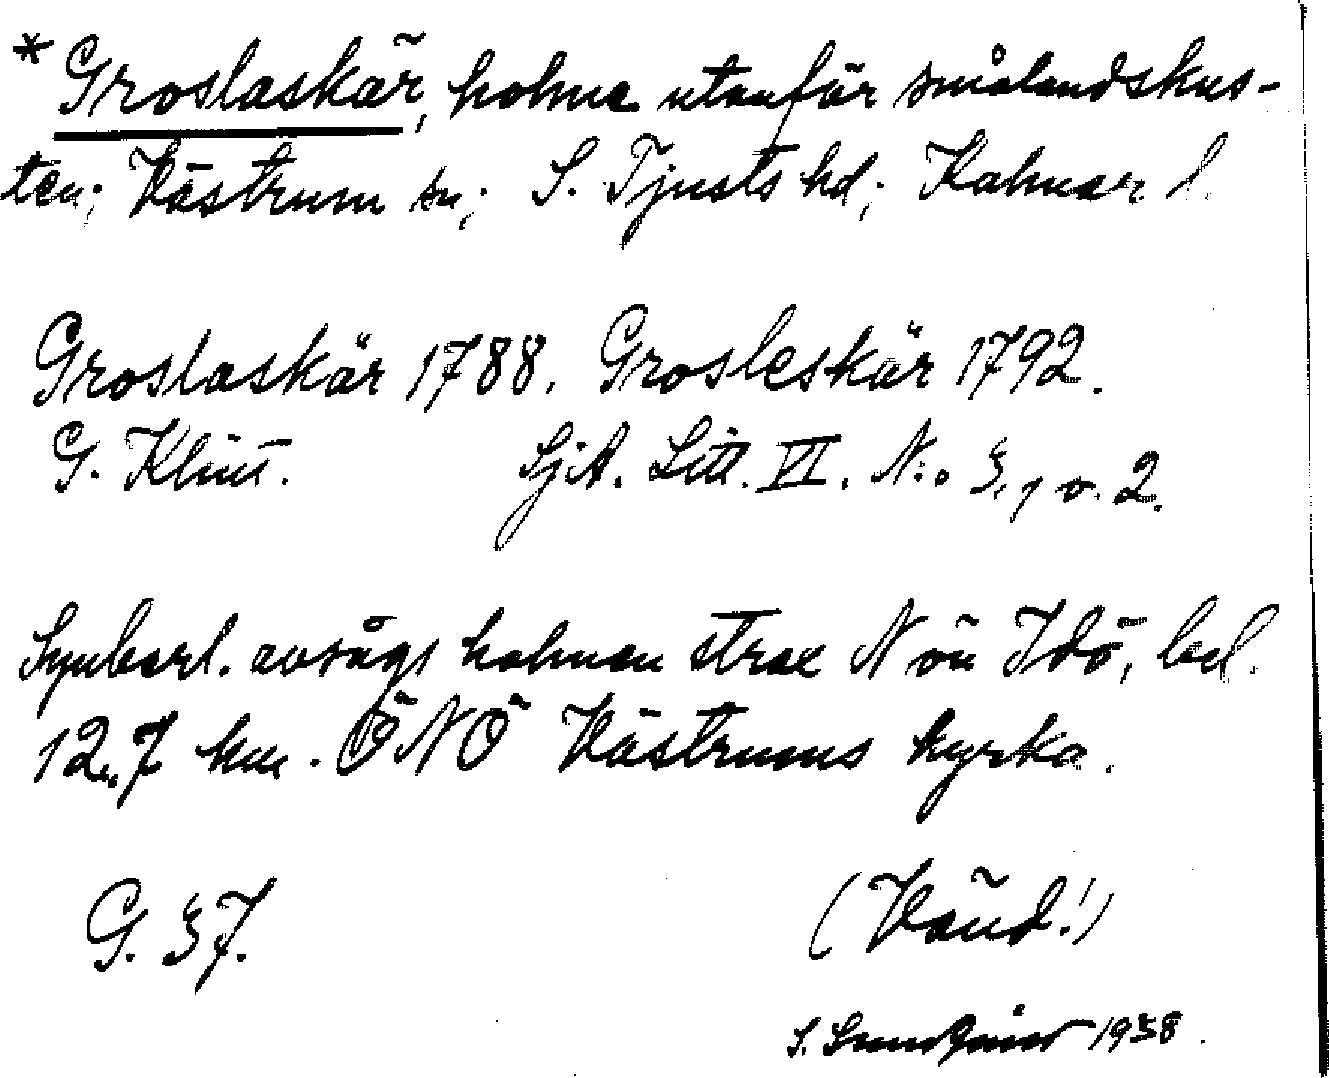 * Groslaskär, holme utanför smålandskus-
ten; Västrum sn; S. Tjusts hd; Kalmar l.
Groslaskär 1788. Grosleskär 1792.
G. Klint. SjA. Litt. VI. N:o 3, 1 o. 2.
Synbarl. avsågs holmen strax N ön Idö, bel.
12,7 km. ÖNÖ Västrums kyrka.
G. 37. (Vänd!)
S. 1938.